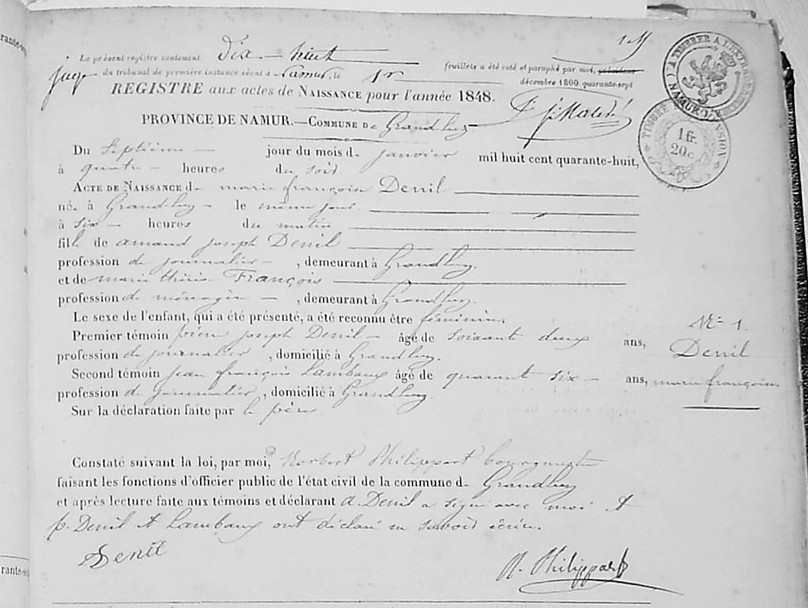 Le présent registre contenant Dix-huit feuillets a été coté et paraphé par moi, président
juge du tribunal de première instance séant à Namur, le 1r décembre 1800 quarante-sept
REGISTRE aux actes de NAISSANCE pour l'année 1848.
PROVINCE DE NAMUR.—COMMUNE De Grandleez
Du Septième jour du mois de janvier mil huit cent quarante-huit,
à quatre heures du soir
ACTE DE NAISSANCE de marie françoise Denil
née à Grandleez le même jour
à six heures du matin
fille de amand joseph Denil
profession de journalier , demeurant à Grandleez
et de marie thérèse François
profession de ménagère , demeurant à Grandleez
Le sexe de l'enfant, qui a été présenté, a été reconnu être féminin.
Premier témoin joseph Denil âgé de soixante deux ans,
profession de journalier , domicilié à Grandleez
Second témoin jean françois Lambaux âgé de quarante six ans,
profession de journalier , domicilié à Grandleez
Sur la déclaration faite par le père.
N° 1
Denil
marie françoise
Constaté suivant la loi, par moi, Norbert Philippart bourgmestre
faisant les fonctions d'officier public de l'état civil de la commune de Grandleez
et après lecture faite aux témoins et déclarant a. Denil a signé avec moi et
p. Denil et Lambaux ont déclaré ne savoir écrire.
Denil
N. Philippart
1 fr.
20 c